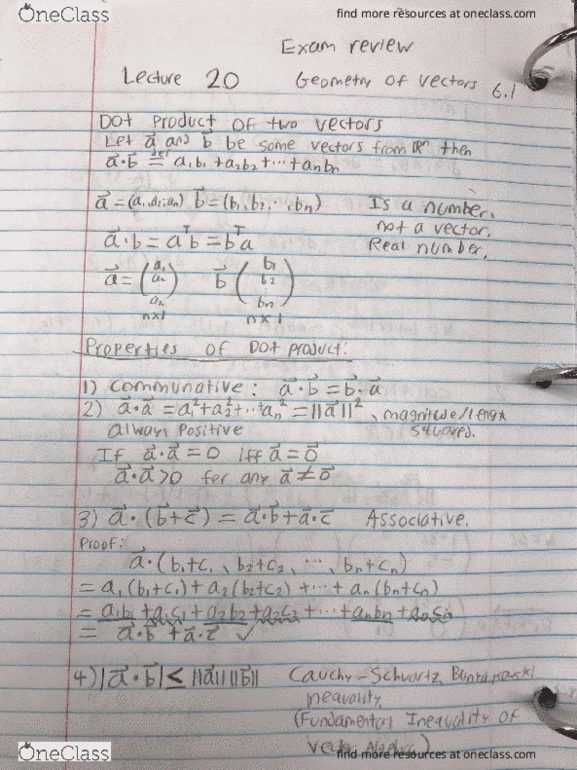 OneClass
find more resources at oneclass.com
Exam review
Lecture 20 Geometry of vectors 6.1
Dot product of two vectors
Let a⃗ and b⃗ be some vectors from ℝⁿ then
a⃗·b⃗ def= a₁b₁ + a₂b₂ + ··· + aₙbₙ
a⃗ = (a₁, a₂, ..aₙ) b⃗ = (b₁, b₂, ··, bₙ) Is a number,
not a vector,
a⃗·b = aᵀb = bᵀa Real number.
a⃗ = (a₁ aₙ aₙ) b⃗ (b₁ b₂ : bₙ)
n×1 n×1
Properties of Dot product:
1) Communative: a⃗·b⃗ = b⃗·a⃗
2) a⃗·a⃗ = a₁² + a₂² + ··· aₙ² = ||a⃗||², magnitude/length
always positive squared.
If a⃗·a⃗ = 0 iff a⃗ = 0⃗
a⃗·a⃗ > 0 for any a⃗ ≠ 0⃗
3) a⃗·(b⃗+c⃗) = a⃗·b⃗ + a⃗·c⃗ Associative.
Proof:
a⃗·(b₁+c₁, b₂+c₂, ···, bₙ+cₙ)
= a₁(b₁+c₁) + a₂(b₂+c₂) + ··· + aₙ(bₙ+cₙ)
= a₁b₁ + a₁c₁ + a₂b₂ + a₂c₂ + ··· + aₙbₙ + aₙcₙ
= a⃗·b⃗ + a⃗·c⃗ ✓
4) |a⃗·b⃗| ≤ ||a⃗|| ||b⃗|| Cauchy-Schwartz
Inequality
(Fundamental Inequality of
Vector Algebra)
OneClass
find more resources at oneclass.com